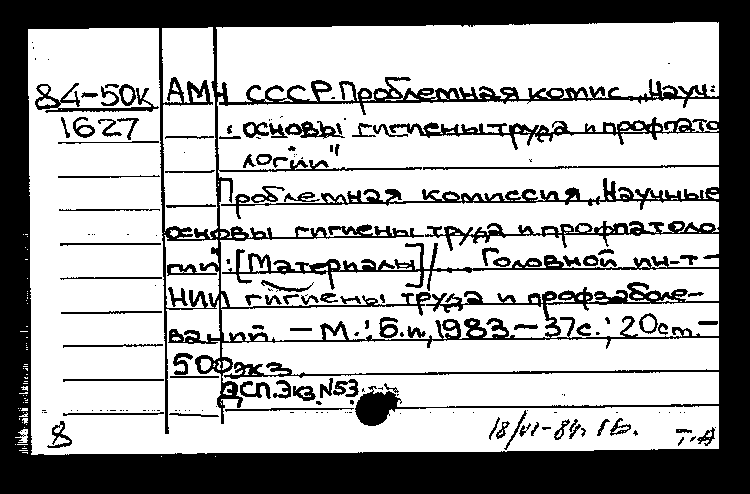 84-50к АМН СССР. Проблемная комис. „Науч.
1627 основы гигиены труда и профпато
логии"
Проблемная комиссия „Научные
основы гигиены труда и профпатоло
гии": [Материалы] /... Головной ин-т -
НИИ гигиены труда и профзаболе-
ваний. - М.: Б.и, 1983. - 37с.; 20см. -
500экз.
ЭСП. Экз. N53
8 18/VI-84. Т.А